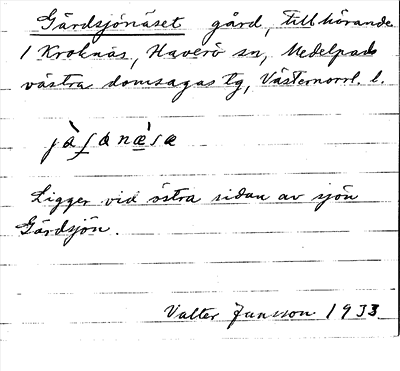 Gärdsjönäset gård, tillhörande
1 Kroknäs, Haverö sn, Medelpads
västra domsagas tg, Västernorrl. l.
Ligger vid östra sidan av sjön
Gärdsjön.
Valter Jansson 1933